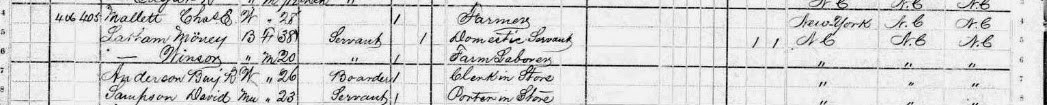 N.C N.C N.C
406 405 Mallett Chas E. W " 28 1 Farmer New-York N.C N.C
5 Latham Money B F 38 Servant 1 Domestic Servant 1 1 N.C N.C N.C 5
— Winson " M 20 " 1 Farm Laborer " " " 6
7 Anderson Benj B W " 26 Boarder 1 Clerk in Store " " "
8 Sampson David Mu " 23 Servant 1 Porter in Store " " " 8